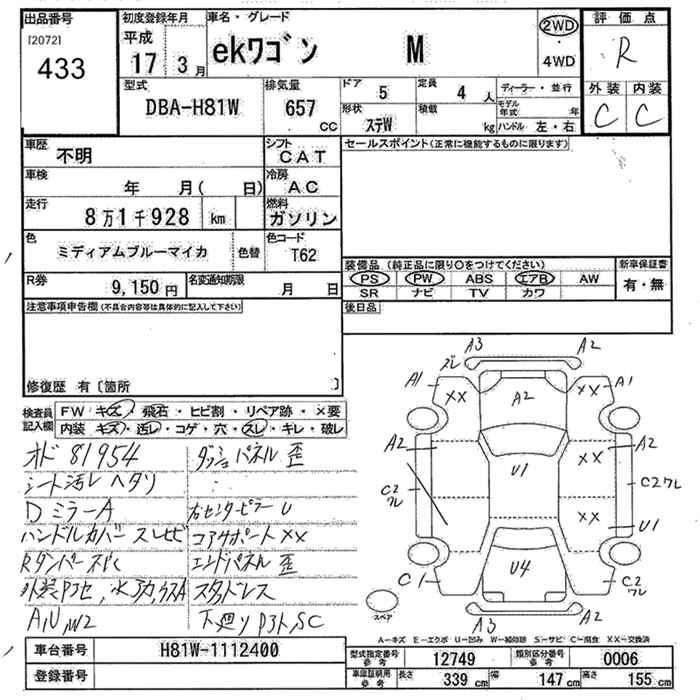 出品番号
[2072]
433
初度登録年月
平成
17 3月
車名・グレード
ekワゴン M
2WD
・
4WD
評価点
R
外装 内装
C C
型式
DBA-H81W
排気量
657
cc
ドア 5
定員 4 人
形状 ステW
積載 kg
ディーラー・並行
モデル年式 年
ハンドル 左・右
車歴 不明
シフト CAT
セールスポイント(正常に機能するものに限ります)
車検 年 月( 日)
冷房 AC
走行 8万1千928 km
燃料 ガソリン
色 ミディアムブルーマイカ 色替
色コード T62
R券 9,150円
名変通知期限 月 日
装備品 (純正品に限り○をつけてください)
新車保証書
PS PW ABS エアB AW
有・無
SR ナビ TV カワ
後日品
注意事項申告欄(不具合内容等は具体的に記入して下さい)
修復歴 有〔箇所 〕
検査員記入欄
FW キズ・飛石・ヒビ割・リペア跡・×要
内装 キズ・汚レ・コゲ・穴・スレ・キレ・破レ
オド 81954 ダッシュパネル歪
シート汚レ ヘタリ
Dミラー A 右センターピラー U
ハンドルカバー スレ コアサポート XX
エンドパネル 歪
スタッドレス
下廻り Pタト, SC
A3 A2
ズレ
A1 XX A2 XX A1
A2 XX A2
U1
C2 ワレ C2ワレ
XX
U1
C1 U4 C2 ワレ
スペア
A3 A2
A-キズ E-エクボ U-凹み W-補修跡 S-サビ C-腐食 XX-交換済
車台番号 H81W-1112400
登録番号
型式指定番号 参考 12749
類別区分番号 参考 0006
車庫証明用 参考 長さ 339 cm 幅 147 cm 高さ 155 cm